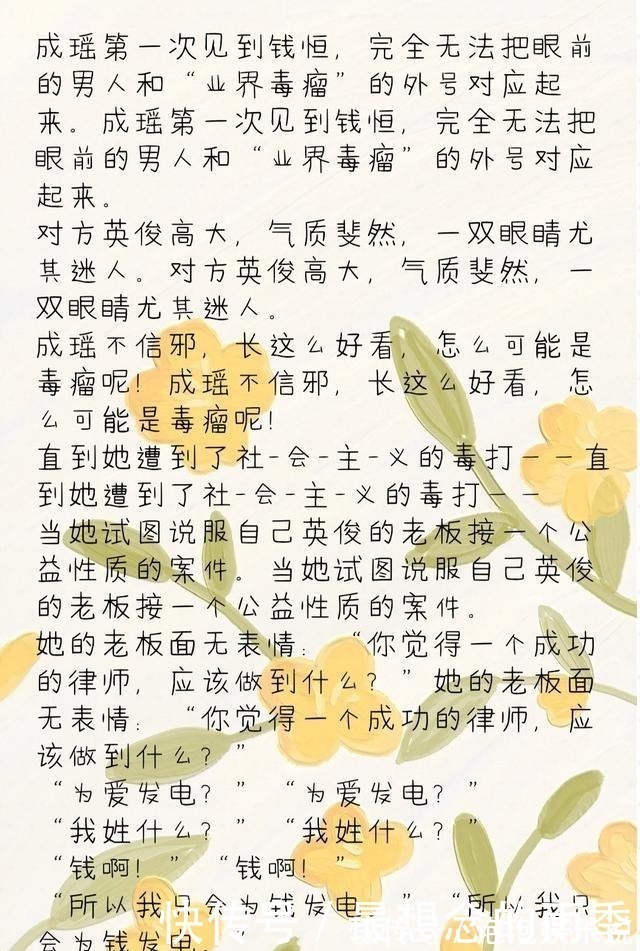 成瑶第一次见到钱恒，完全无法把眼前
的男人和“业界毒瘤”的外号对应起
来。成瑶第一次见到钱恒，完全无法把
眼前的男人和“业界毒瘤”的外号对应
起来。
对方英俊高大，气质斐然，一双眼睛尤
其迷人。对方英俊高大，气质斐然，一
双眼睛尤其迷人。
成瑶不信邪，长这么好看，怎么可能是
毒瘤呢！成瑶不信邪，长这么好看，怎
么可能是毒瘤呢！
直到她遭到了社-会-主-义的毒打——直
到她遭到了社-会-主-义的毒打——
当她试图说服自己英俊的老板接一个公
益性质的案件。当她试图说服自己英俊
的老板接一个公益性质的案件。
她的老板面无表情：“你觉得一个成功
的律师，应该做到什么？”她的老板面
无表情：“你觉得一个成功的律师，应
该做到什么？”
“为爱发电？”“为爱发电？”
“我姓什么？”“我姓什么？”
“钱啊！”“钱啊！”
“所以我只会为钱发电。”“所以我只
会为钱发电。”
快传号/最想念的雨季